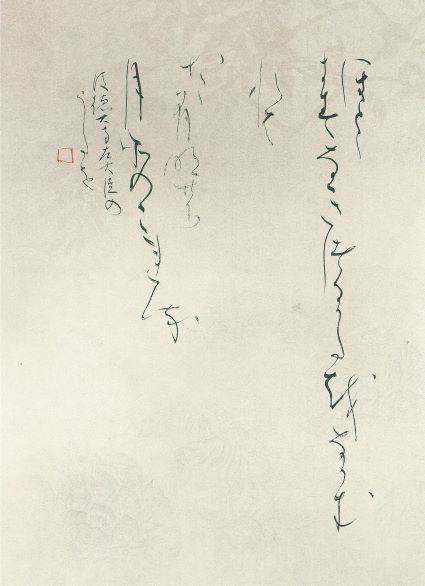 ほとゝ
きすなきつるかたをなかむ
れは
たゝ有明の
月そのこれる
後徳大寺左大臣の